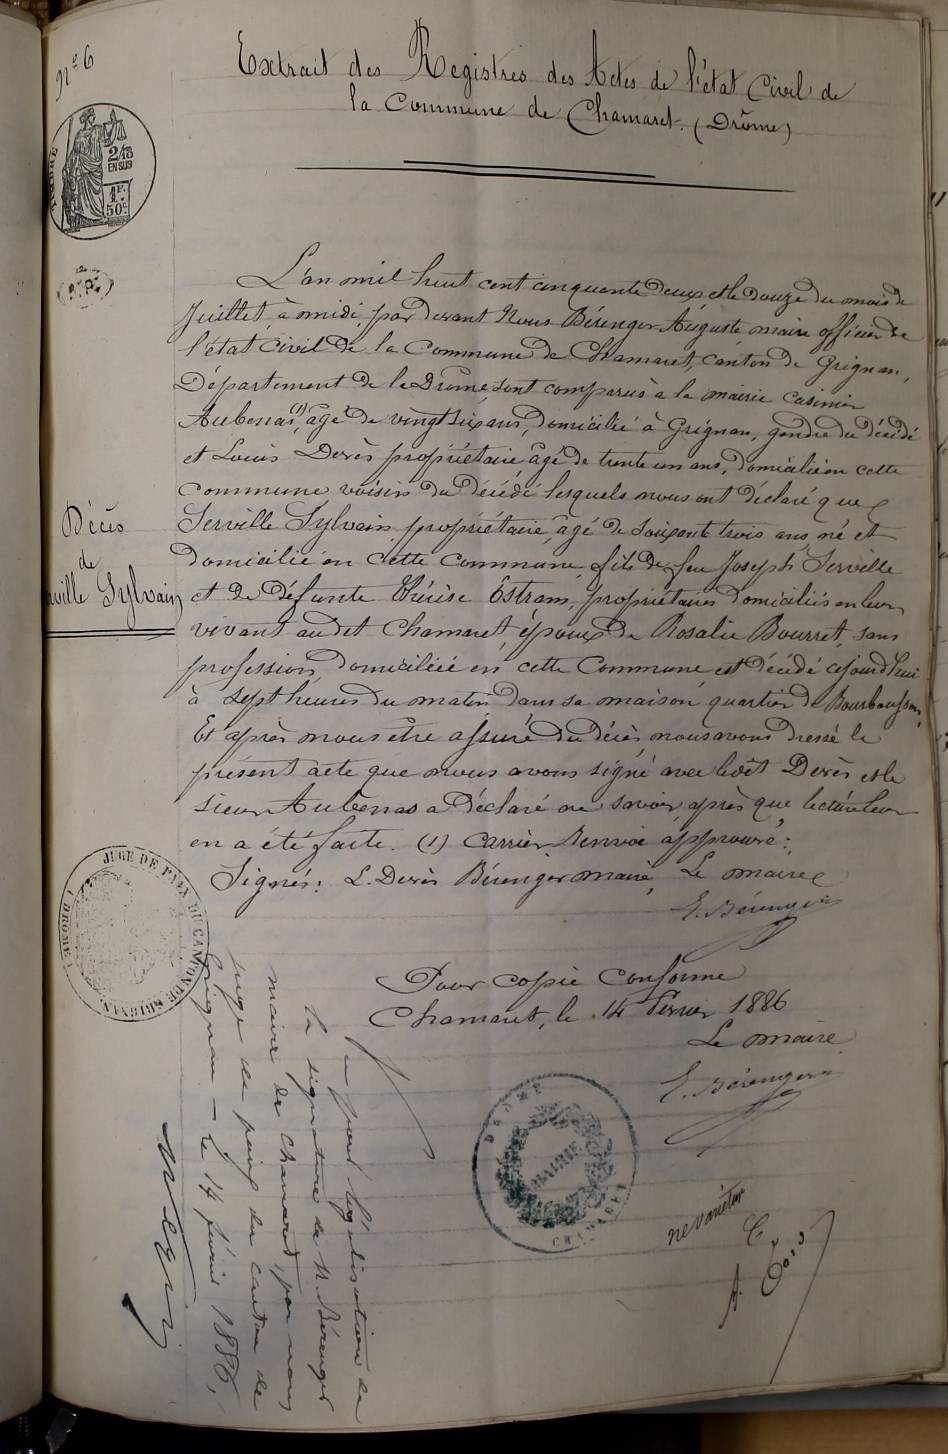 N° 6
Extrait des Registres des Actes de l'état Civil de
la Commune de Chamaret. (Drôme)
TIMBRE
2/10
EN SUS
1F.
50c
L'an mil huit cent cinquante deux et le douze du mois de
Juillet à midi, par devant Nous Bérenger Auguste maire officier de
l'état Civil de la Commune de Chamaret, canton de Grignan,
Département de la Drôme, sont comparus à la mairie Casimir
Aubenas (1), âgé de vingt six ans, domicilié à Grignan, gendre du décédé
et Louis Devès propriétaire âgé de trente un ans, domicilié en cette
Commune voisin du décédé lesquels nous ont déclaré que
Serville Sylvain, propriétaire, âgé de soixante trois ans, né et
domicilié en cette commune fils de feu Joseph Serville
et de défunte Thérèse Estran, propriétaires domiciliés en leur
vivant au dit Chamaret, époux de Rosalie Bourret, sans
profession, domiciliée en cette Commune est décédé cejourd'hui
à sept heures du matin dans sa maison quartier de
Et après nous être assuré du décès nous avons dressé le
présent acte que nous avons signé avec ledit Devès et le
sieur Aubenas a déclaré ne savoir, après que lecture leur
en a été faite. (1) Carrier, Renvoi approuvé.
Signés: L. Devès Bérenger maire, Le maire
E. Bérenger
Décès
de
Serville Sylvain
Pour copie Conforme
Chamaret, le 14 Février 1886
Le maire
E. Bérenger
JUGE DE PAIX DU CANTON DE GRIGNAN (DROME)
Vu pour légalisation de
la signature de M. Bérenger
maire de Chamaret, par nous
juge de paix du canton de
Grignan - le 14 février 1886,
DROME
MAIRIE
CHAMARET
ne varietur